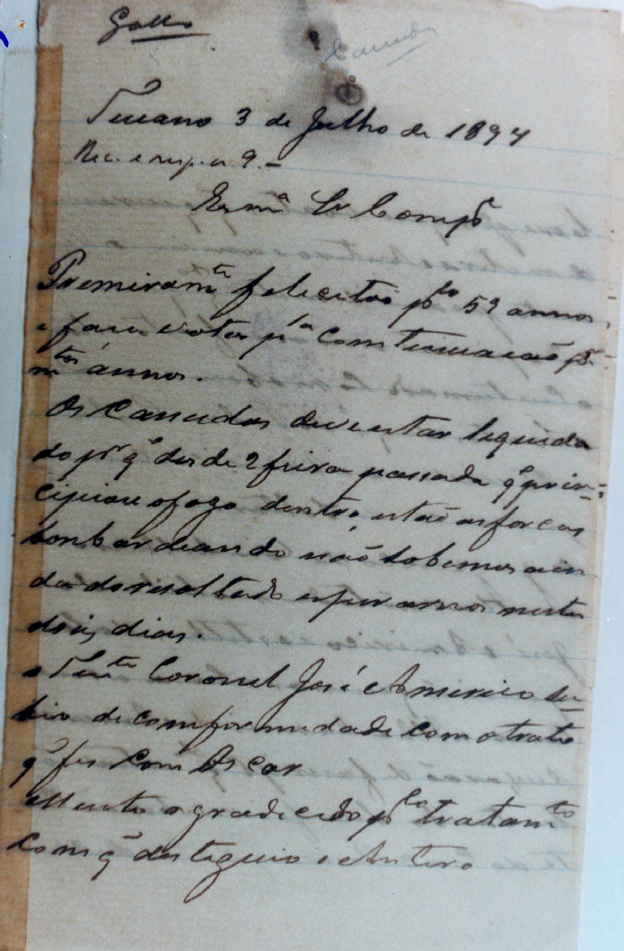 Gallo
Canudos
Tucano 3 de Julho de 1897
Rec. e resp. a 9. –
Exmº Sr Compe
Premeiramte felicitão plo 59 annos,
e faço votos pla comtinuacão pr
mtos ánnos.
Os Canudos deve estar liquida
do pr q̃ desde 2 feira passada q̃ prin=
cipiou o fogo dentro, estão as forcas
bonbardiando não sobemos ain
da do resoltado esperamos nestes
dois dias.
O Tente Coronel José Americo su
bio de comformidade com o trato
q̃ fes com Oscar
Muito agradecido plo tratamto
com q̃ destiguio o Antero